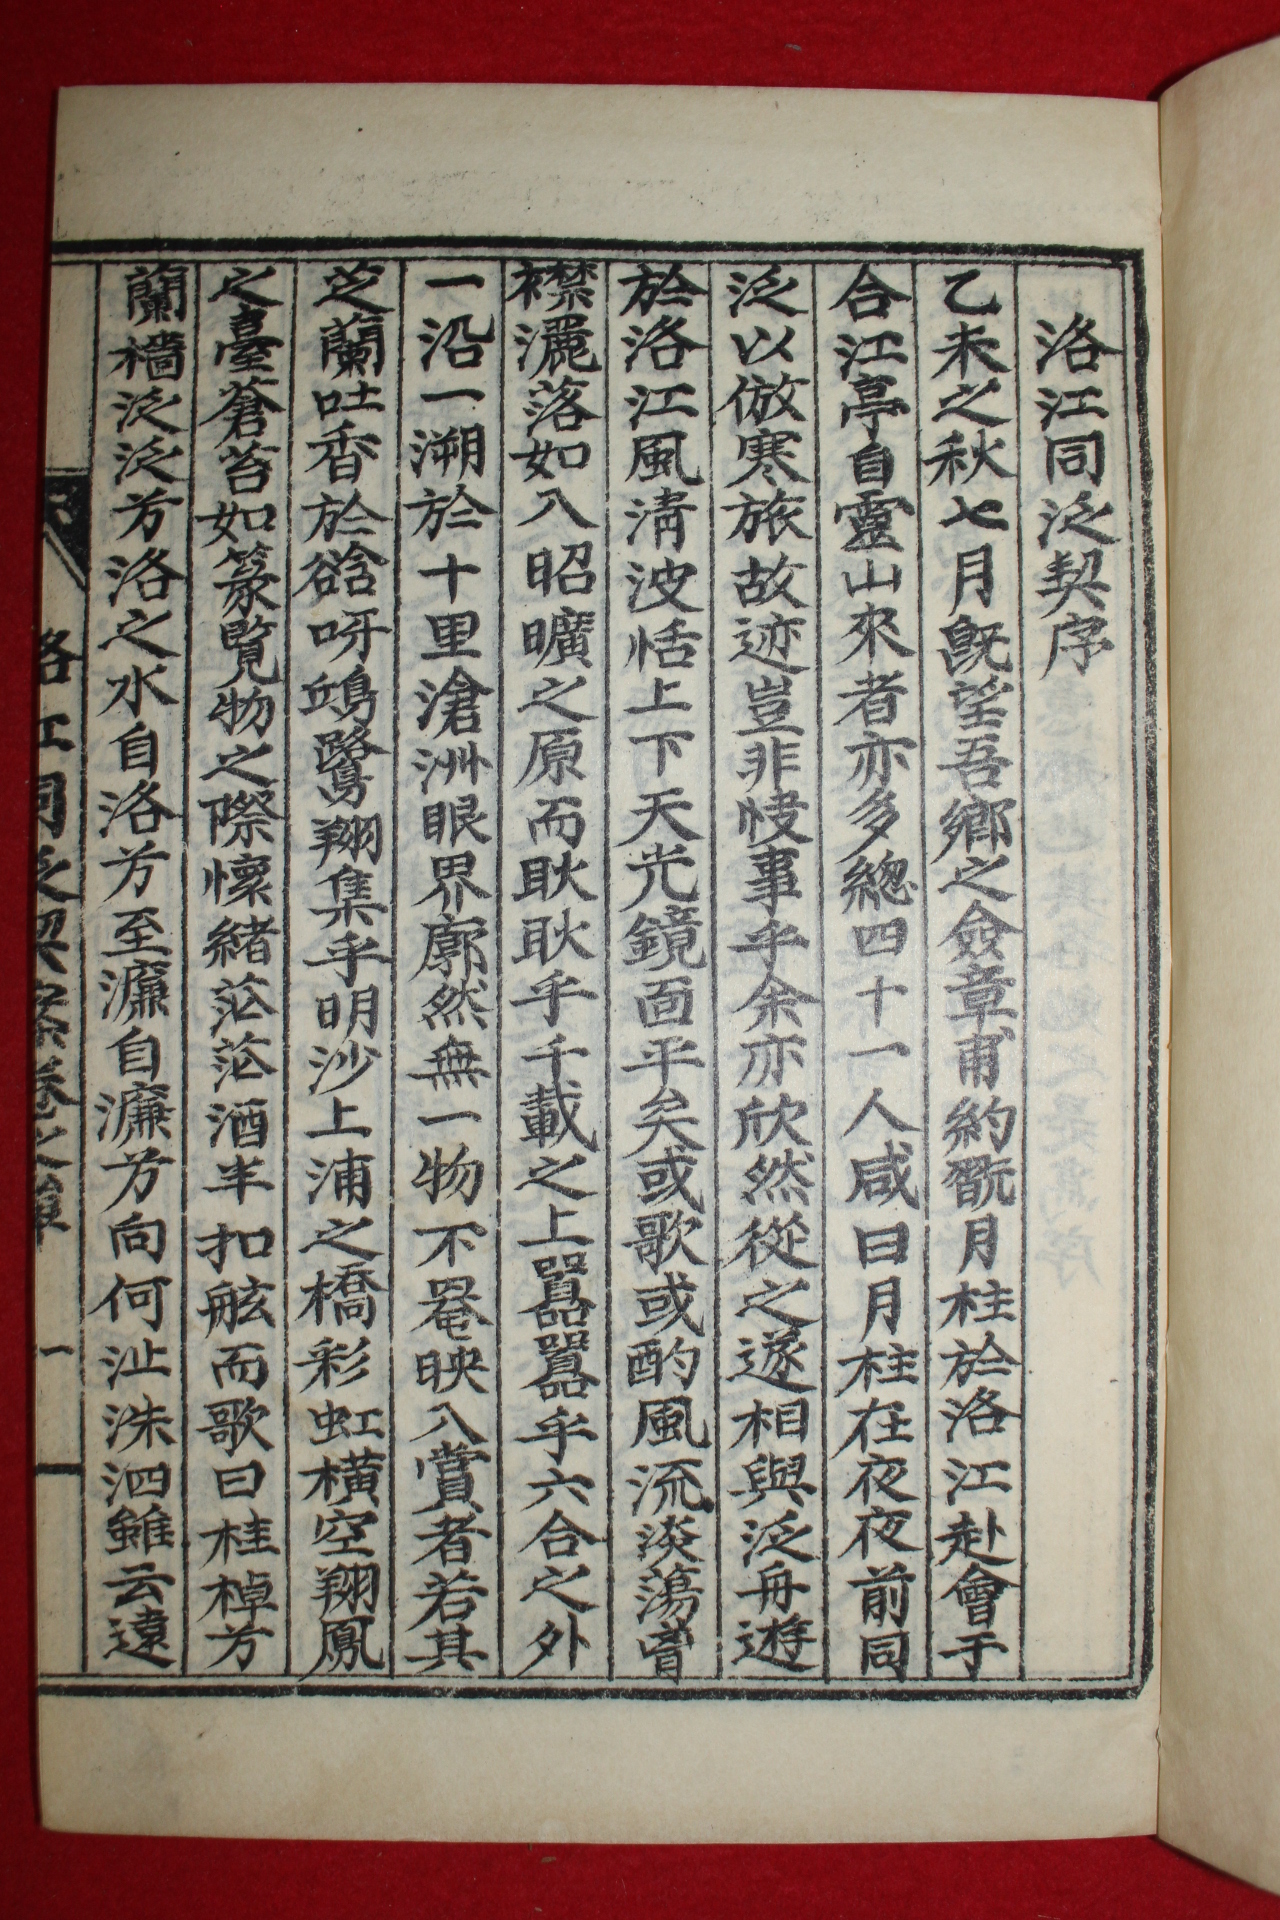 洛江同泛契序
乙未之秋七月旣望吾鄕之僉章甫約翫月柱於洛江赴會于
合江亭自靈山來者亦多總四十一人咸曰月柱在夜夜前同
泛以倣寒旅故迹豈非快事乎余亦欣然從之遂相與泛舟遊
於洛江風淸波恬上下天光鏡面平矣或歌或酌風流淡蕩胷
襟灑落如入昭曠之原而耿耿乎千載之上囂囂乎六合之外
一沿一溯於十里滄洲眼界廓然無一物不罨映入賞者若其
芝蘭吐香於谽呀鴢鷺翔集乎明沙上浦之橋彩虹橫空翔鳳
之臺蒼苔如篆覽物之際懷緖茫茫酒半扣舷而歌曰桂棹方
蘭檣泛泛方洛之水自洛方至濂自濂方向何沚洙泗雖云遠
洛江同泛契案卷之單 一